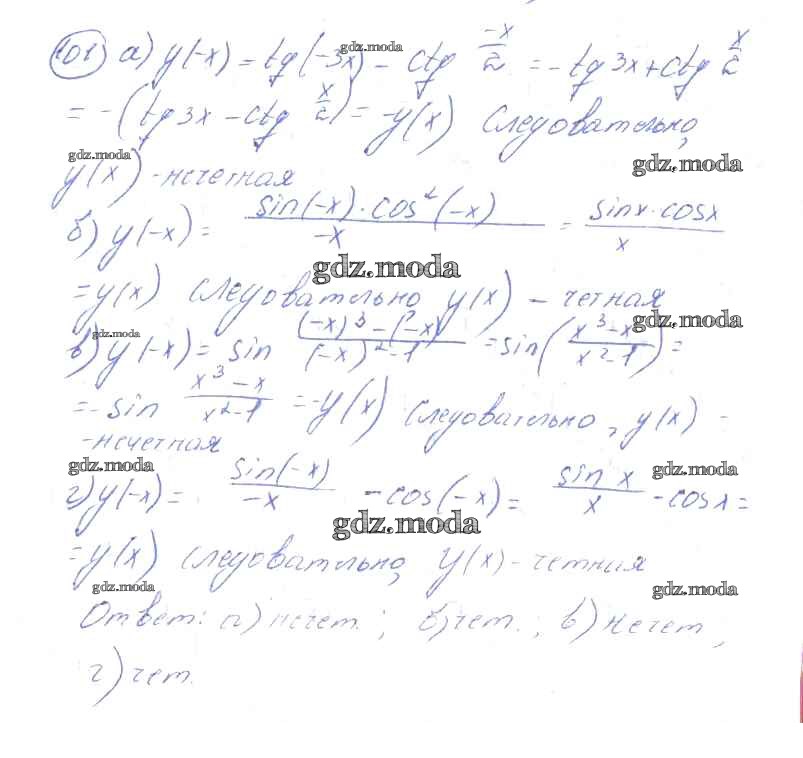 101 а) y(-x) = tg(-3x) - ctg -x/2 = -tg3x + ctg x/2
= -(tg3x - ctg x/2) = -y(x) Следовательно,
y(x) - нечетная
б) y(-x) = sin(-x)·cos²(-x)/-x = sinx·cosx/x
= y(x) следовательно y(x) - четная
в) y(-x) = sin (-x)³-(-x)/(-x)²-1 = sin(x³-x/x²-1) =
= -sin x³-x/x²-1 = -y(x) следовательно, y(x) -
-нечетная
г) y(-x) = sin(-x)/-x - cos(-x) = sin x/x - cosx =
= y(x) следовательно, y(x) - четная
Ответ: а) нечет.; б) чет.; в) нечет,
г) чет.
gdz.moda
gdz.moda
gdz.moda
gdz.moda
gdz.moda
gdz.moda
gdz.moda
gdz.moda
gdz.moda
gdz.moda
gdz.moda